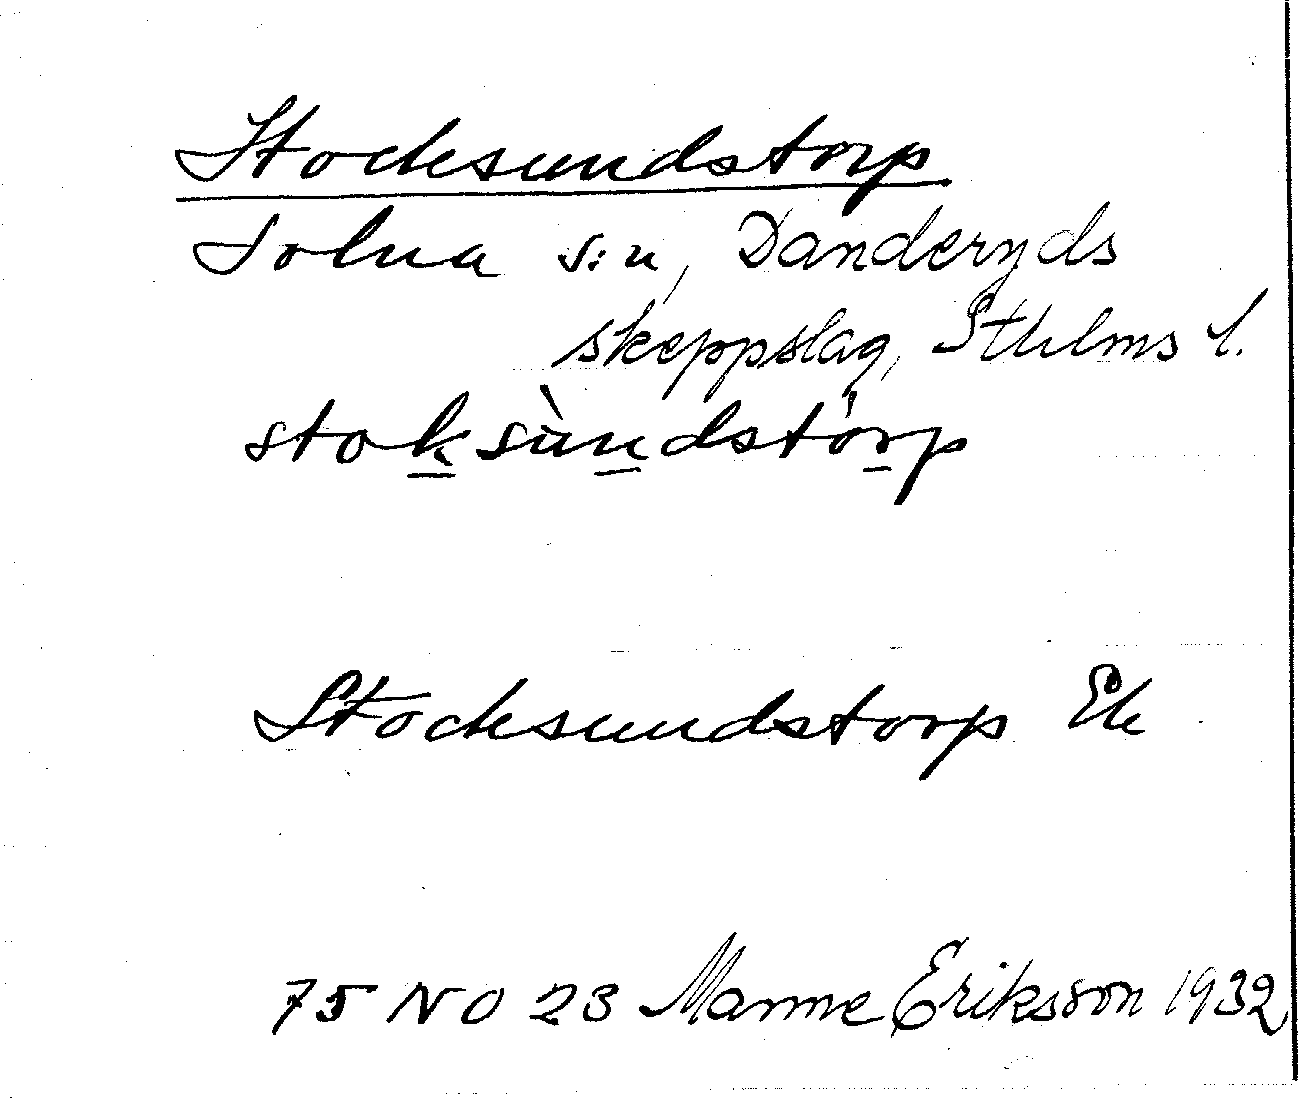 Stocksundstorp
Solna s:n, Danderyds
skeppslag, Sthlms l.
stoksùndstórp
Stocksundstorp Ek
75 NO 23 Manne Eriksson 1932